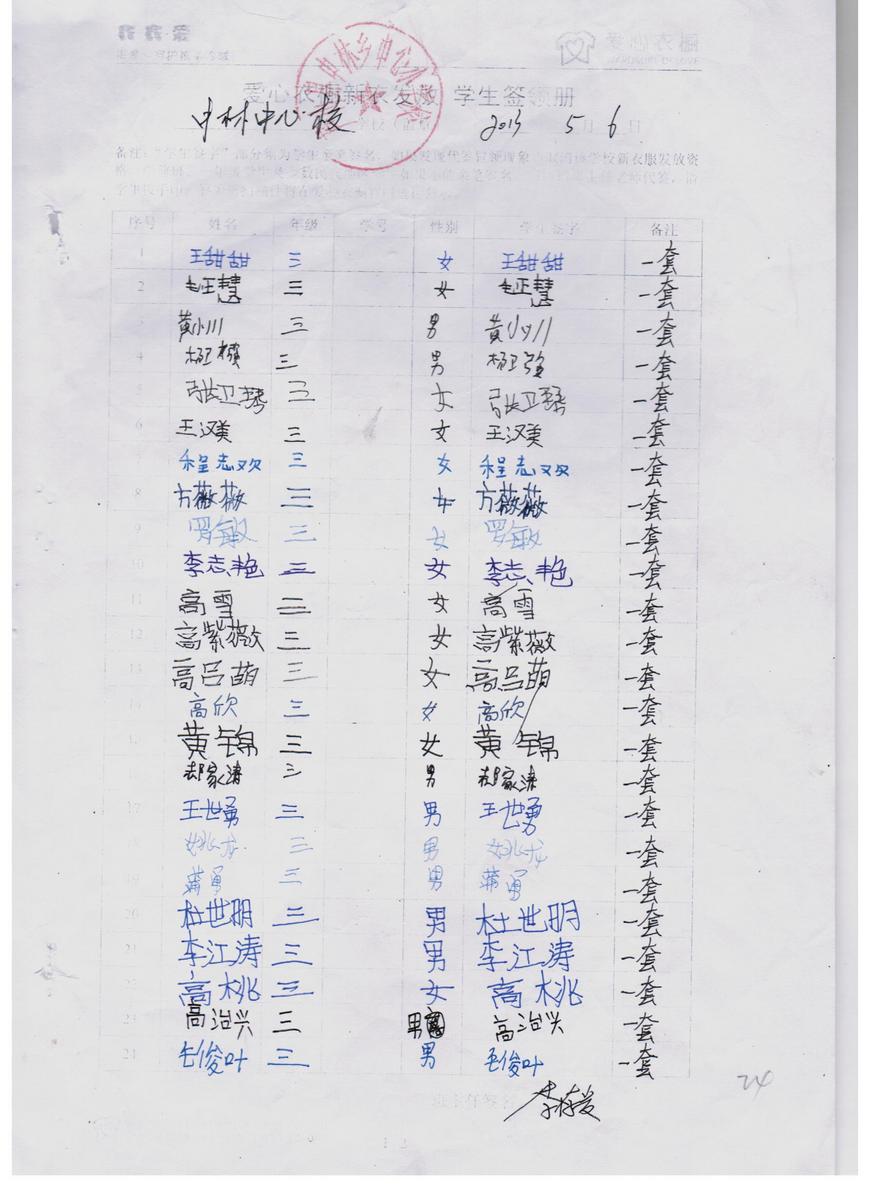 爱心衣橱
爱心衣橱新衣发放 学生签领册
中林中心校 学校 2013 5月6日
序号 姓名 年级 学号 性别 学生签字 备注
1 王甜甜 三 女 王甜甜 一套
2 女 一套
3 黄小川 三 男 黄小川 一套
4 三 男 杨卫强 一套
5 张卫琴 三 女 张卫琴 一套
6 王汉美 三 女 王汉美 一套
7 程志欢 三 女 程志欢 一套
8 方薇薇 三 女 方薇薇 一套
9 罗敏 三 女 罗敏 一套
10 李志艳 三 女 李志艳 一套
11 高雪 三 女 高雪 一套
12 高紫薇 三 女 高紫薇 一套
13 高吕萌 三 女 高吕萌 一套
14 高欣 三 女 高欣 一套
15 黄锦 三 女 黄锦 一套
16 郝家涛 三 男 郝家涛 一套
17 王世勇 三 男 王世勇 一套
18 姚龙 三 男 姚龙 一套
19 蒋勇 三 男 蒋勇 一套
20 杜世明 三 男 杜世明 一套
21 李江涛 三 男 李江涛 一套
22 高桃 三 女 高桃 一套
23 高治兴 三 男 高治兴 一套
24 毛俊叶 三 男 毛俊叶 一套
班主任签名
24